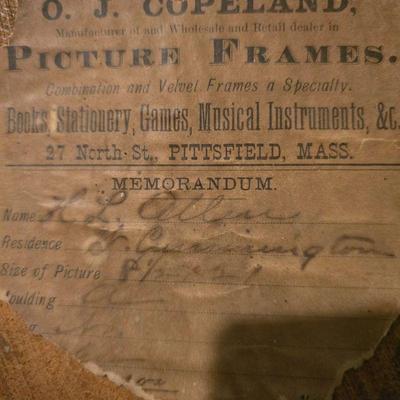 O. J. COPELAND,
Manufacturer of and Wholesale and Retail dealer in
PICTURE FRAMES.
Combination and Velvet Frames a Specialty.
Books, Stationery, Games, Musical Instruments, &c.
27 North-St., PITTSFIELD, MASS.
MEMORANDUM.
Name H. L. Allen
Residence Cummington
Size of Picture
oulding